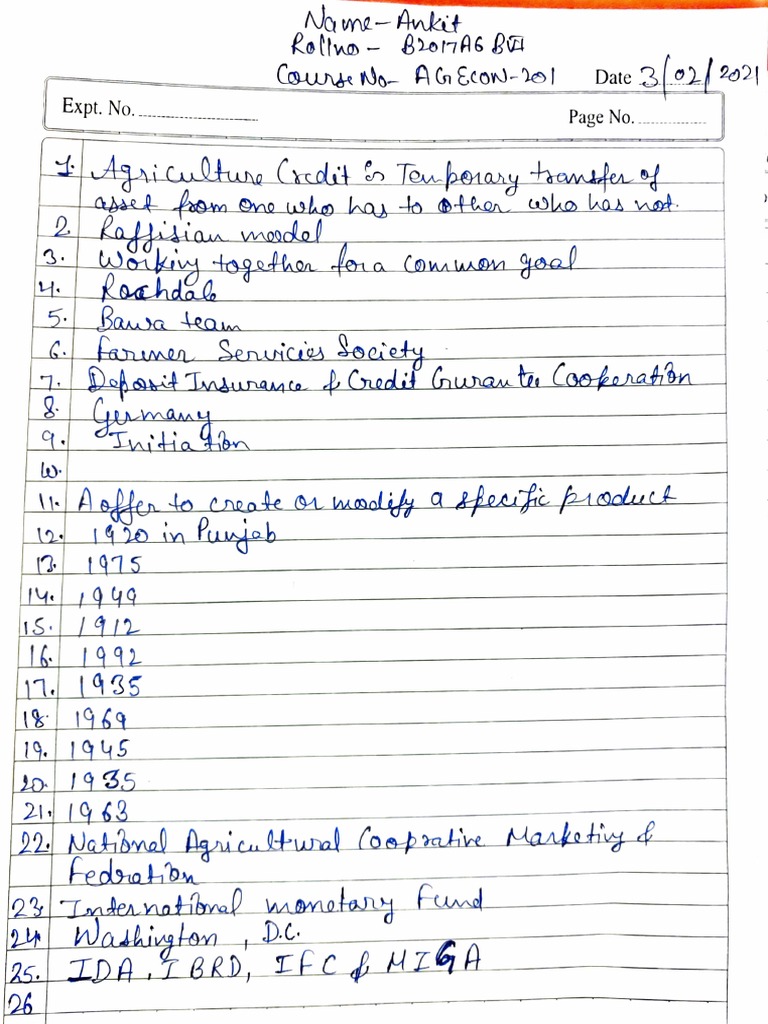 Name - Ankit
Rollno - B2017A6 BVI
Course No - AGECON-201 Date 3/02/2021
Expt. No.
Page No.
1. Agriculture Credit is Temporary transfer of
asset from one who has to other who has not.
2. Raffisian model
3. Working together for a common goal
4. Rochdale
5. Bawa team
6. Farmer Servicies Society
7. Deposit Insurance & Credit Gurantee Cooperation
8. Germany
9. Initiation
10.
11. A offer to create or modify a specific product
12. 1920 in Punjab
13. 1975
14. 1949
15. 1912
16. 1992
17. 1935
18. 1969
19. 1945
20. 1935
21. 1963
22. National Agricultural Cooprative Marketing &
Fedration
23. International monetary Fund
24. Washington, D.C.
25. IDA, IBRD, IFC & MIGA
26